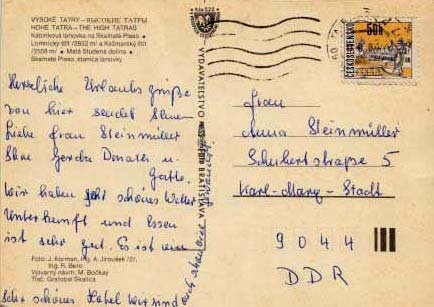 VYSOKÉ TATRY – ВЫСОКИЕ ТАТРЫ
HOHE TATRA – THE HIGH TATRAS
Kabínková lanovka na Skalnaté Pleso,
Lomnický štít /2632 m/ a Kežmarský štít
/2558 m/ • Malá Studená dolina •
Skalnaté Pleso, stanica lanovky
Herzliche Urlaubs grüße
von hier sendet Ihnen
liebe Frau Steinmüller
Ihre Gerda Donath u.
Gatte.
Wir haben sehr schönes Wetter
Unterkunft und Essen
ist sehr gut. Es ist ein
sehr schönes Hotel wir sind
Foto: J. Korman, Ing. A. Jiroušek /2/,
Ing. R. Bero
Výtvarný návrh: M. Bočkay
Tlač: Grafobal Skalica
VYDAVATEĽSTVO
BRATISLAVA
60h
ČESKOSLOVENSKO
Frau
Anna Steinmüller
Schubertstraße 5
Karl-Marx-Stadt
9044
DDR